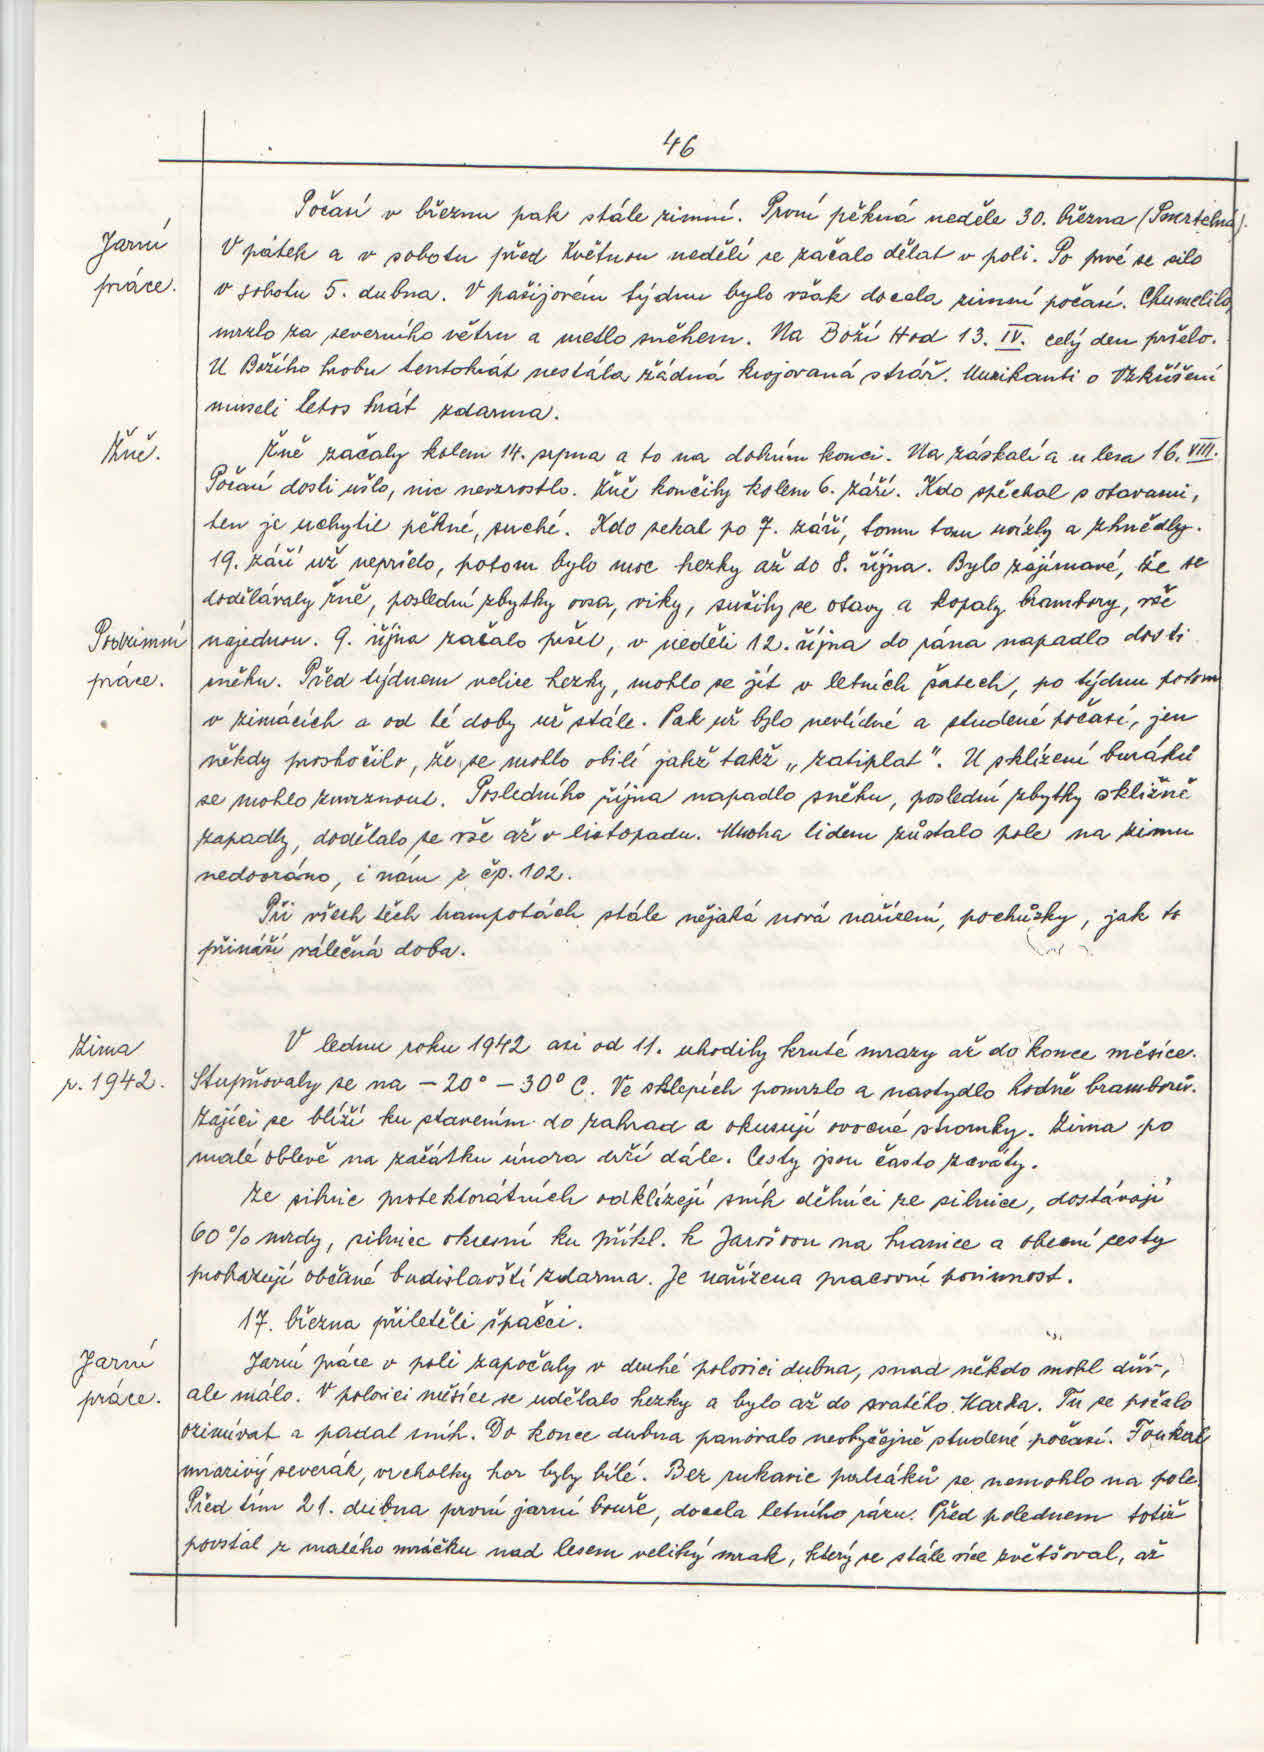 46
Počasí v březnu pak stále zimní. První pěkná neděle 30. března (Smrtelná).
Jarní
práce.
V pátek a v sobotu před Květnou nedělí se začalo dělat v poli. Po prvé se silo
v sobotu 5. dubna. V pašijovém týdnu bylo však docela zimní počasí. Chumelilo,
mrzlo za severního větru a metlo sněhem. Na Boží Hod 13. IV. celý den pršelo.
U Božího hrobu tentokrát nestála žádná krojovaná stráž. Muzikanti o Vzkříšení
museli letos hrát zdarma.
Žně.
Žně začaly kolem 14. srpna a to na dolním konci. Na záskalí a u lesa 16. VIII.
Počasí dosti ušlo, nic nevzrostlo. Žně končily kolem 6. září. Kdo spěchal s otavami,
ten je uchytil pěkné, suché. Kdo sekal po 7. září, tomu tam uvízly a zhnědly.
19. září už nepršelo, potom bylo moc hezky až do 8. října. Bylo zajímavé, že se
dodělávaly žně, poslední zbytky ovsa, viky, sušily se otavy a kopaly brambory, vše
Podzimní
práce.
najednou. 9. října začalo pršet, v neděli 12. října do rána napadlo dosti
sněhu. Před týdnem velice hezky, mohlo se jít v letních šatech, po týdnu potom
v zimácích a od té doby už stále. Pak už bylo nevlídné a studené počasí, jen
někdy proskočilo, že se mohlo obilí jakž takž „zatiplat". U sklízení buráků
se mohlo zmrznout. Posledního října napadlo sněhu, poslední zbytky sklizně
zapadly, dodělalo se vše až v listopadu. Mnoha lidem zůstalo pole na zimu
nedooráno, i nám z čp. 102.
Při všech těch trampotách stále nějaká nová nařízení, pochůzky, jak to
přináší válečná doba.
Zima
r. 1942.
V lednu roku 1942 asi od 11. uhodily kruté mrazy až do konce měsíce.
Stupňovaly se na – 20° – 30° C. Ve sklepích pomrzlo a nastydlo hodně brambor.
Zajíci se blíží ku stavením do zahrad a okusují ovocné stromky. Zima po
malé oblevě na začátku února drží dále. Cesty jsou často zaváty.
Ze silnic protektorátních odklízejí sníh dělníci ze silnice, dostávají
60% mzdy, silnice okresní ku příkl. k Jarošovu na hranice a obecní cesty
prohazují občané budislavští zdarma. Je nařízena pracovní povinnost.
17. března přiletěli špačci.
Jarní
práce.
Jarní práce v poli započaly v druhé polovici dubna, snad někdo mohl dřív,
ale málo. V polovici měsíce se udělalo hezky a bylo až do svatého Marka. Tu se počalo
ozimívat a padal sníh. Do konce dubna panovalo neobyčejně studené počasí. Foukal
mrazivý severák, vrcholky hor byly bílé. Bez rukavic palčáků se nemohlo na pole.
Před tím 21. dubna první jarní bouře, docela letního rázu. Před polednem totiž
povstal z malého mráčku nad lesem veliký mrak, který se stále více zvětšoval, až